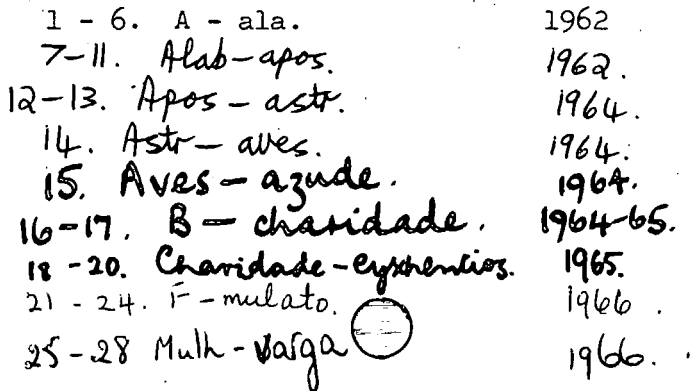 1 - 6. A - ala. 1962
7-11. Alab-apos. 1962.
12-13. Apos - astr. 1964.
14. Astr - aves. 1964.
15. Aves - azude. 1964.
16-17. B - charidade. 1964-65.
18 - 20. Charidade - 1965.
21 - 24. F - mulato. 1966.
25 - 28 Mulh - varga 1966.